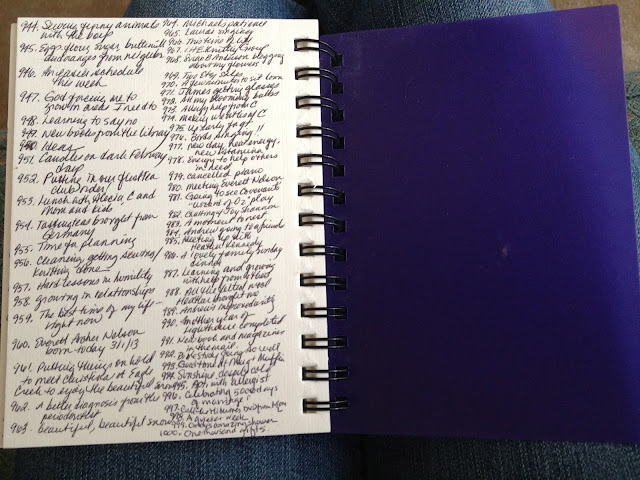 944. Sewing funny animals
with the boys
945. Eggs, flour, sugar, buttermilk
and oranges from neighbor
946. An easier schedule
this week
947. God forcing me to
grow in areas I need to
948. Learning to say no
949. New books from the library
950. Ideas
951. Candles on dark February
days
952. Putting in my
953. Lunch with Alecia, C and
Mom and kids
954. brought from
Germany
955. Time for planning
956. Cleaning, getting sewing/
knitting done
957. Hard lessons in humility
958. growing in relationships
959. The best time of my life-
right now
960. Everett Archer Nelson
born today 3/1/13
961. Putting things on hold
to meet Christina at Eagle
Creek to enjoy the beautiful snow
962. A better diagnosis from the
periodontist
963. Beautiful, beautiful snow
964. Michael's patience
965. Laura's singing
966. This time of life
967. THE Knitting group
968. blogging
about my flowers
969. Two Etsy sales
970. A few minutes to sit down
971. James getting glasses
972. All my blooming bulbs
973. Always help from C
974. making wontons w/ C
975. Up early for gt
976. Birds singing!!
977. New day, new energy,
new stamina
978. Energy to help others
in need
979. cancelled piano
980. meeting Everett Nelson
981. Going to see Covenant's
"Wizard of Oz" play
982. Chatting w/ Joy Shannon
983. A moment to rest
984. Andrew going to a friend's
985. Meeting up with
Heather Kennedy
986. A lovely family Sunday
dinner
987. Learning and growing
with help from
988. All the
Heather brought me
989. Andrew's
990. Another year of
Lighthouse completed
991. New book and magazines
in the mail
992. Bible study going so well
993. Muffin
994. Sunshine despite cold
995. Apt. with allergist
996. Celebrating 5000 days
of marriage!
997.
998. A easier week
999. God's amazing
1000. One thousand gifts.